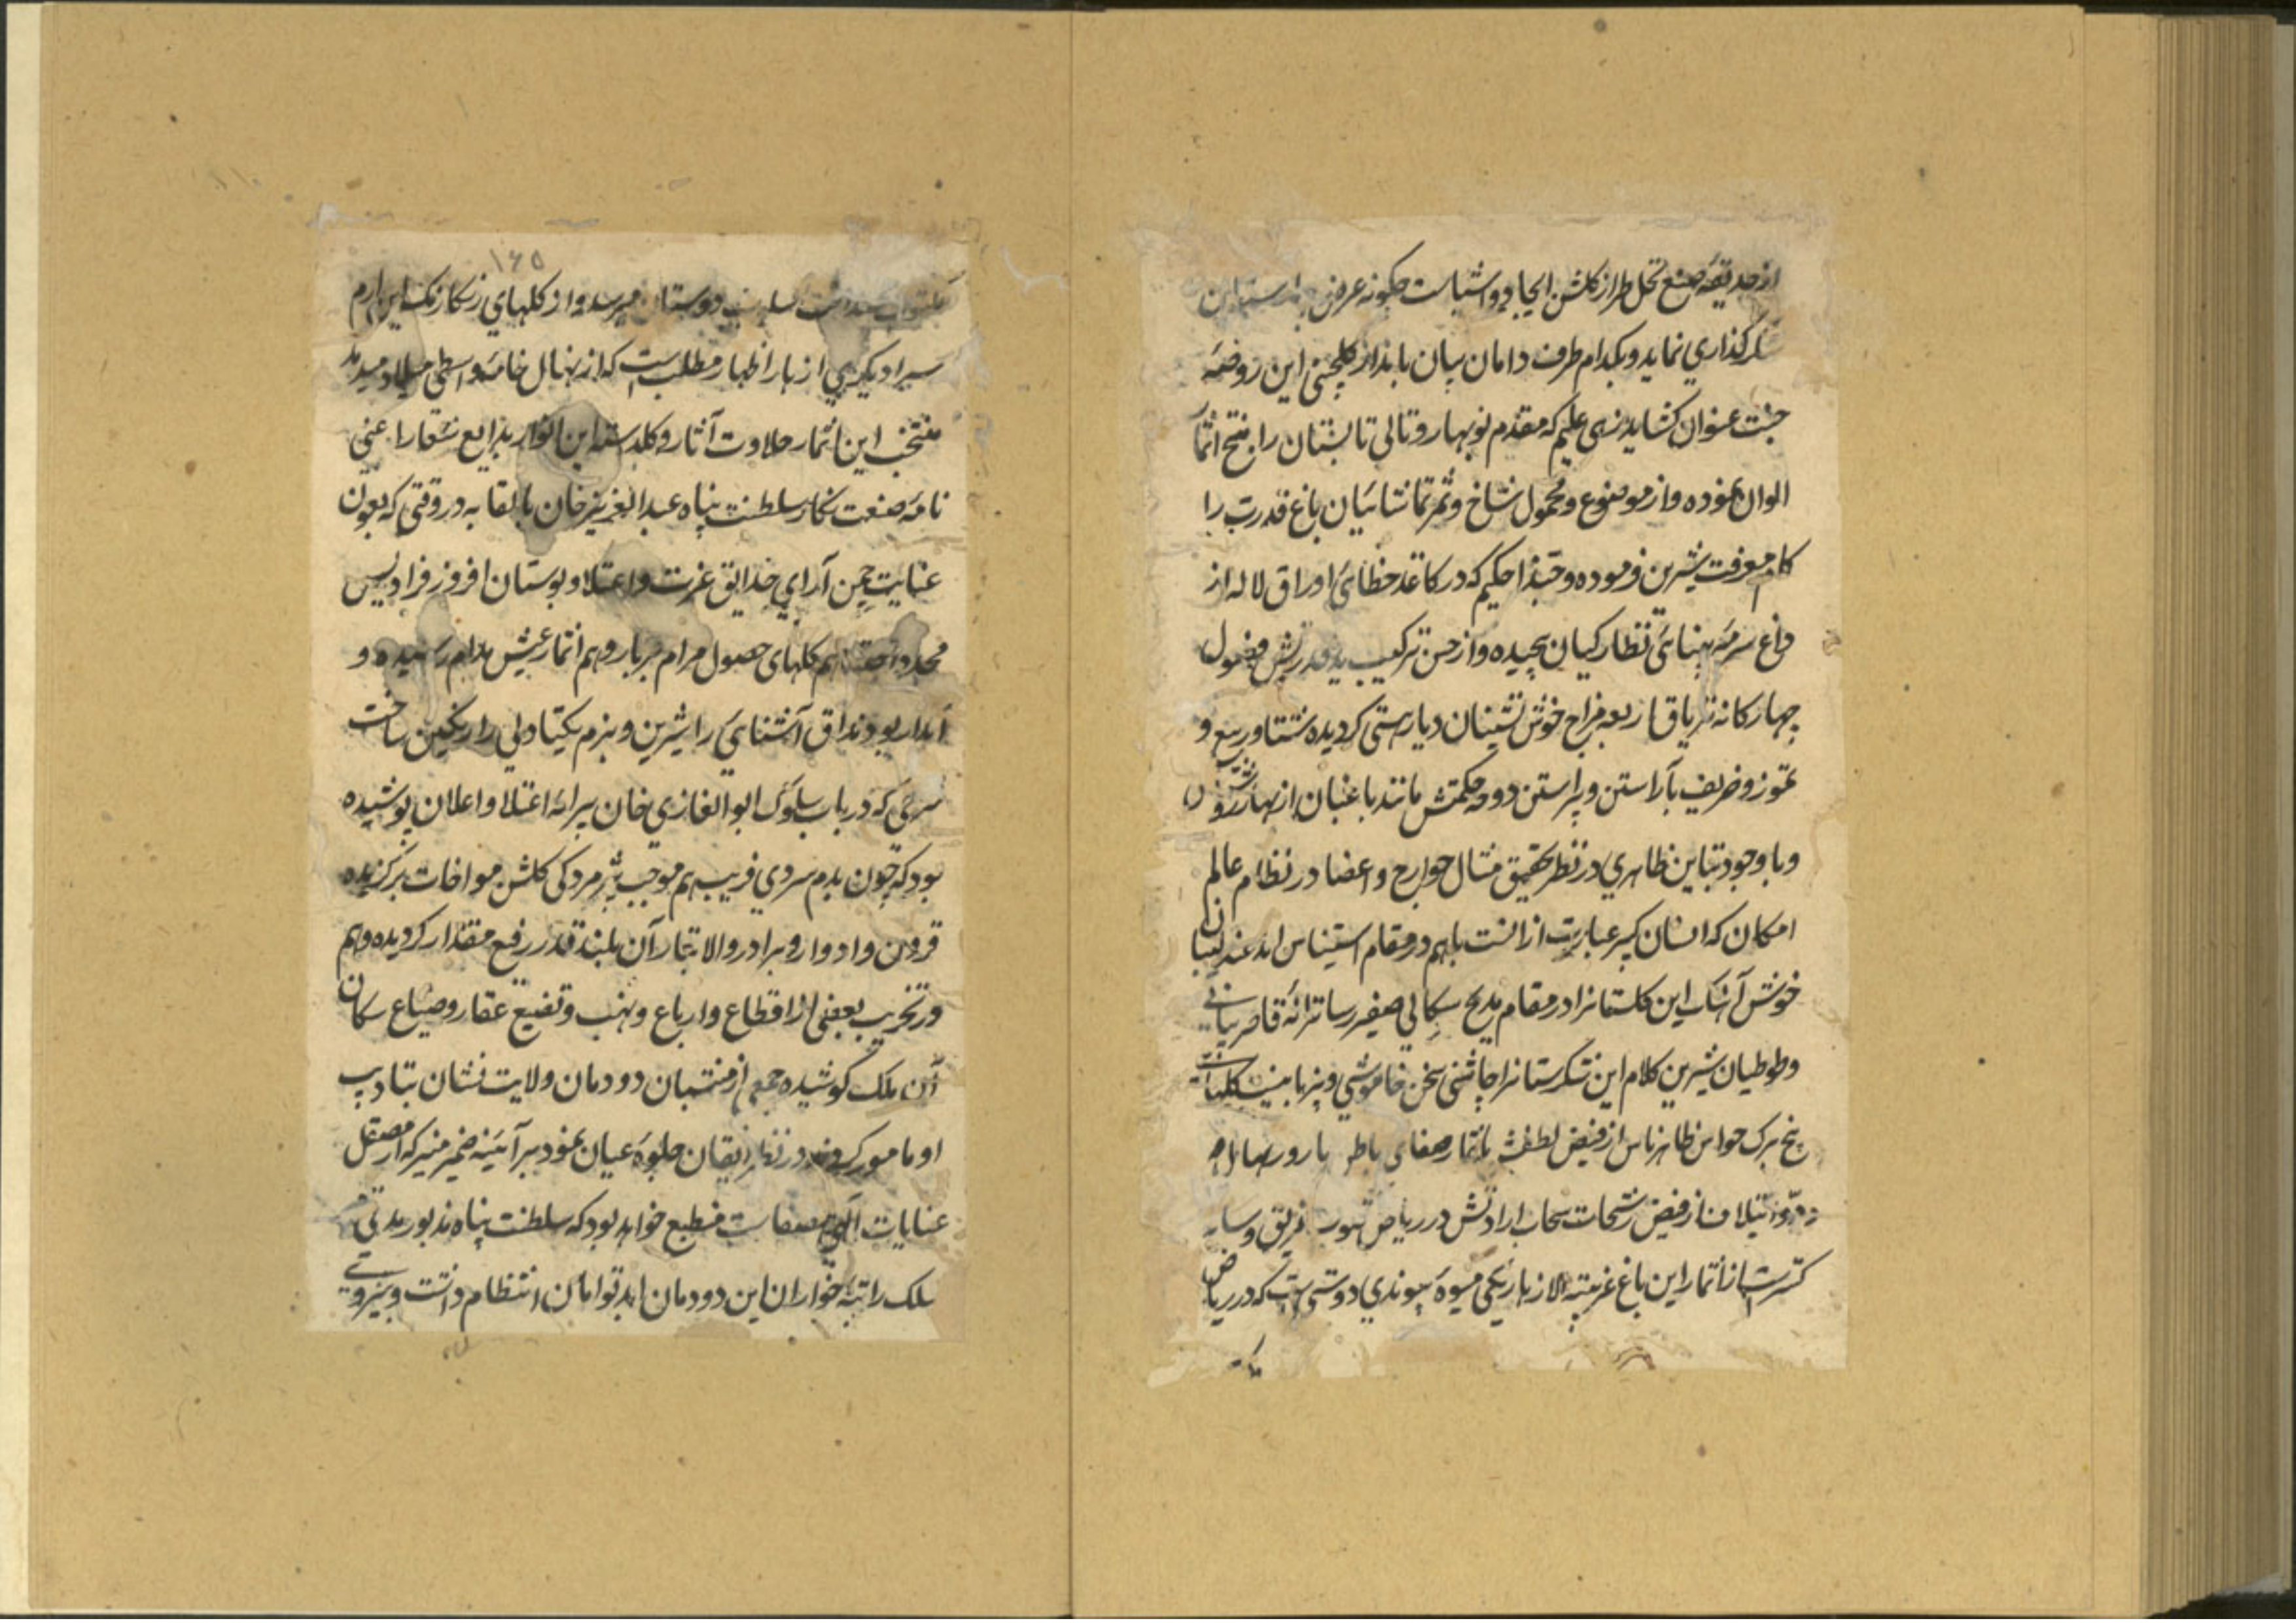 از حدیقه صنع نخل طراز گلشن ایجاد و اشیاست چگونه عرض
شکرگذاری نماید و بکدام طرف دامان بیان باندازه گلچینی این روضه
جنت عنوان گشاید زهی علیم که مقدم نوبهار و تالی تابستان را منتج اثمار
الوان نموده و از موضوع و محمول شاخ و ثمر تماشائیان باغ قدرت را
کام معرفت شیرین فرموده و حبذا حکیم که در کاغذ خطائی اوراق لاله از
داغ سرمه بینائی نظارکیان پیچیده و از حسن ترکیب
چهارکانه تریاق اربعه مزاج خوش نشینان دیار هستی کردیده شتا و ربیع و
تموز و خریف بآراستن و پیراستن دوحه حکمتش مانند باغبان از بهار
و با وجود تباین ظاهری در نظر تحقیق مثال جوارح و اعضا در نظام عالم
امکان که انسان کبیر عبارت از انست باهم در مقام استیناس اند عندلیبان
خوش آهنگ این گلستانرا در مقام مدیح سکالی صفیر رسا ترانه قاصر بیانی
و طوطیان شیرین کلام این شکرستانرا چاشنی سخن خاموشی و
پنج برک حواس ظاهر ناس از فیض لطفش باثمار صفای
از فیض رشحات سحاب ارادتش در ریاض
از اثمار این باغ غریبه الازهار یکی میوه پیوندی دوستی است که در ریاض
یکه
۱۶۵
دوستان میرسد و از کلهای رنکارنک این ارم
سرا دیگری ازهار اظهار مطلب است که از نهال خامه واسطی میلاد میدمد
منتخب این اثمار حلاوت آثار و کلدسته این انوار بدایع شعار اعنی
نامه صنعت نکار سلطنت پناه عبد العزیز خان بالقابه در وقتی که بعون
عنایت چمن آرای حدایق عزت و اعتلا و بوستان افروز فرادیس
کلهای حصول مرام پربار و هم اثمار عیش مدام رسیده و
آبدار بود مذاق آشنائی را شیرین و بزم یکتادلی را رنکین ساخت
شرحی که در باب سلوک ابو الغازی خان پیرایه اعتلا و اعلان پوشیده
بود که چون بدم سردی فریب هم موجب پژمردکی کلشن مواخات برگزیده
قرون و ادوار و برادر والا تبار آن بلند قدر رفیع مقدار کردیده و هم
در تخریب بعضی از اقطاع و ارباع و نهب و تضیع عقار و ضیاع سکان
آن ملک کوشیده جمعی از منتسبان دودمان ولایت نشان بتادیب
او مامور کردند در نظر ایقان جلوه عیان نمود بر آئینه ضمیر منیر که از مصقل
عنایات الهی منطبع خواهد بود که سلطنت پناه مذبور مدتی
سلک راتبه خواران این دودمان ابد توامان انتظام داشت و